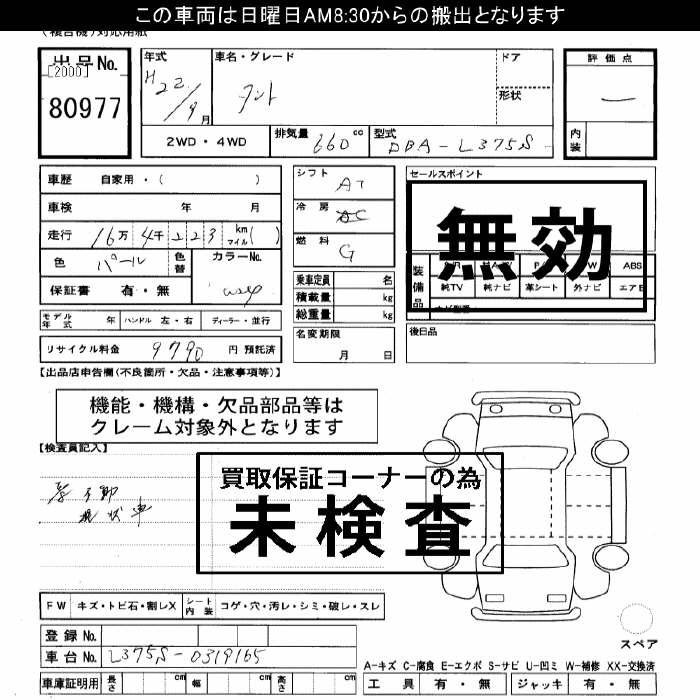 この車両は日曜日AM8:30からの搬出となります
(複合機)対応用紙
出品No.
[2000]
80977
年式
H22/9月
車名・グレード
タント
ドア
形状
評価点
—
内装
2WD・4WD
排気量 660 cc
型式 DBA-L375S
車歴 自家用・( )
車検 年 月
走行 16万 4千 223 km マイル( )
色 パール 色替 カラーNo.
保証書 有・無 W24
シフト AT
冷房 AC
燃料 G
乗車定員 名
積載量 kg
総重量 kg
セールスポイント
無効
装備品
ABS
純TV 純ナビ 革シート 外ナビ エアB
モデル年式 年 ハンドル 左・右 ディーラー・並行
名変期限
月 日
後日品
リサイクル料金 9790 円 預託済
【出品店申告欄(不良箇所・欠品・注意事項等)】
機能・機構・欠品部品等は
クレーム対象外となります
【検査員記入】
買取保証コーナーの為
未検査
不動
現状車
FW キズ・トビ石・割レX シート内装 コゲ・穴・汚レ・シミ・破レ・スレ
登録No.
車台No. L375S-0319165
車庫証明用 長さ cm 幅 cm 高さ cm
スペア
A-キズ C-腐食 E-エクボ S-サビ U-凹ミ W-補修 XX-交換済
工具 有・無 ジャッキ 有・無